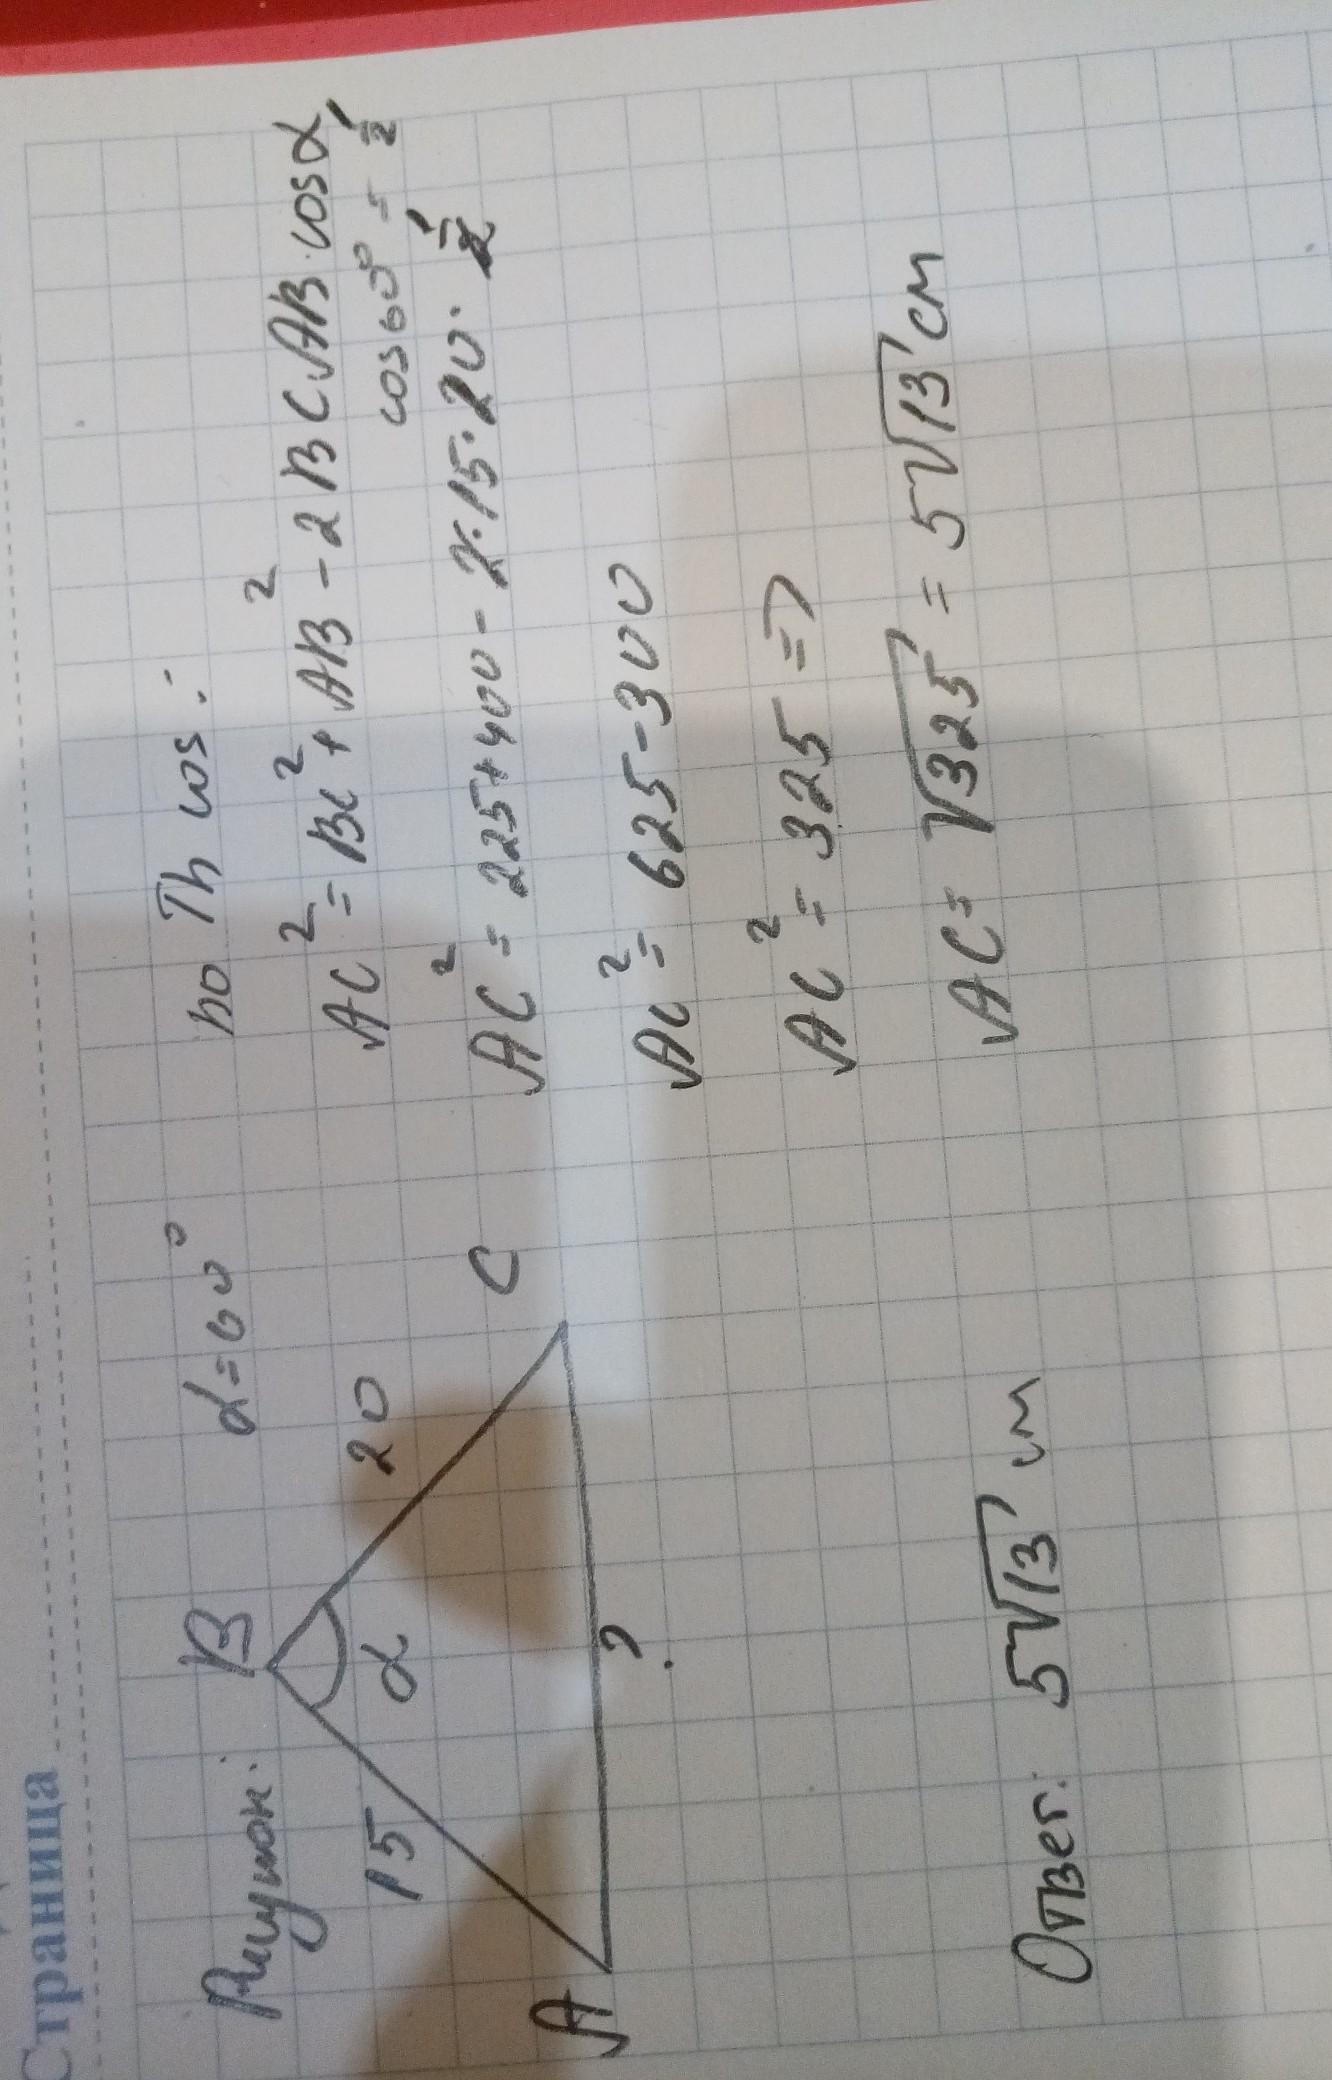 Страница
Рисунок:
B
α=60°
15
α
20
A
C
?
по Th cos:
AC² = BC² + AB² - 2BC·AB·cosα
cos60° = 1/2
AC² = 225+400 - 2·15·20·1/2
AC² = 625-300
AC² = 325 =>
AC = √325 = 5√13 см
Ответ: 5√13 см